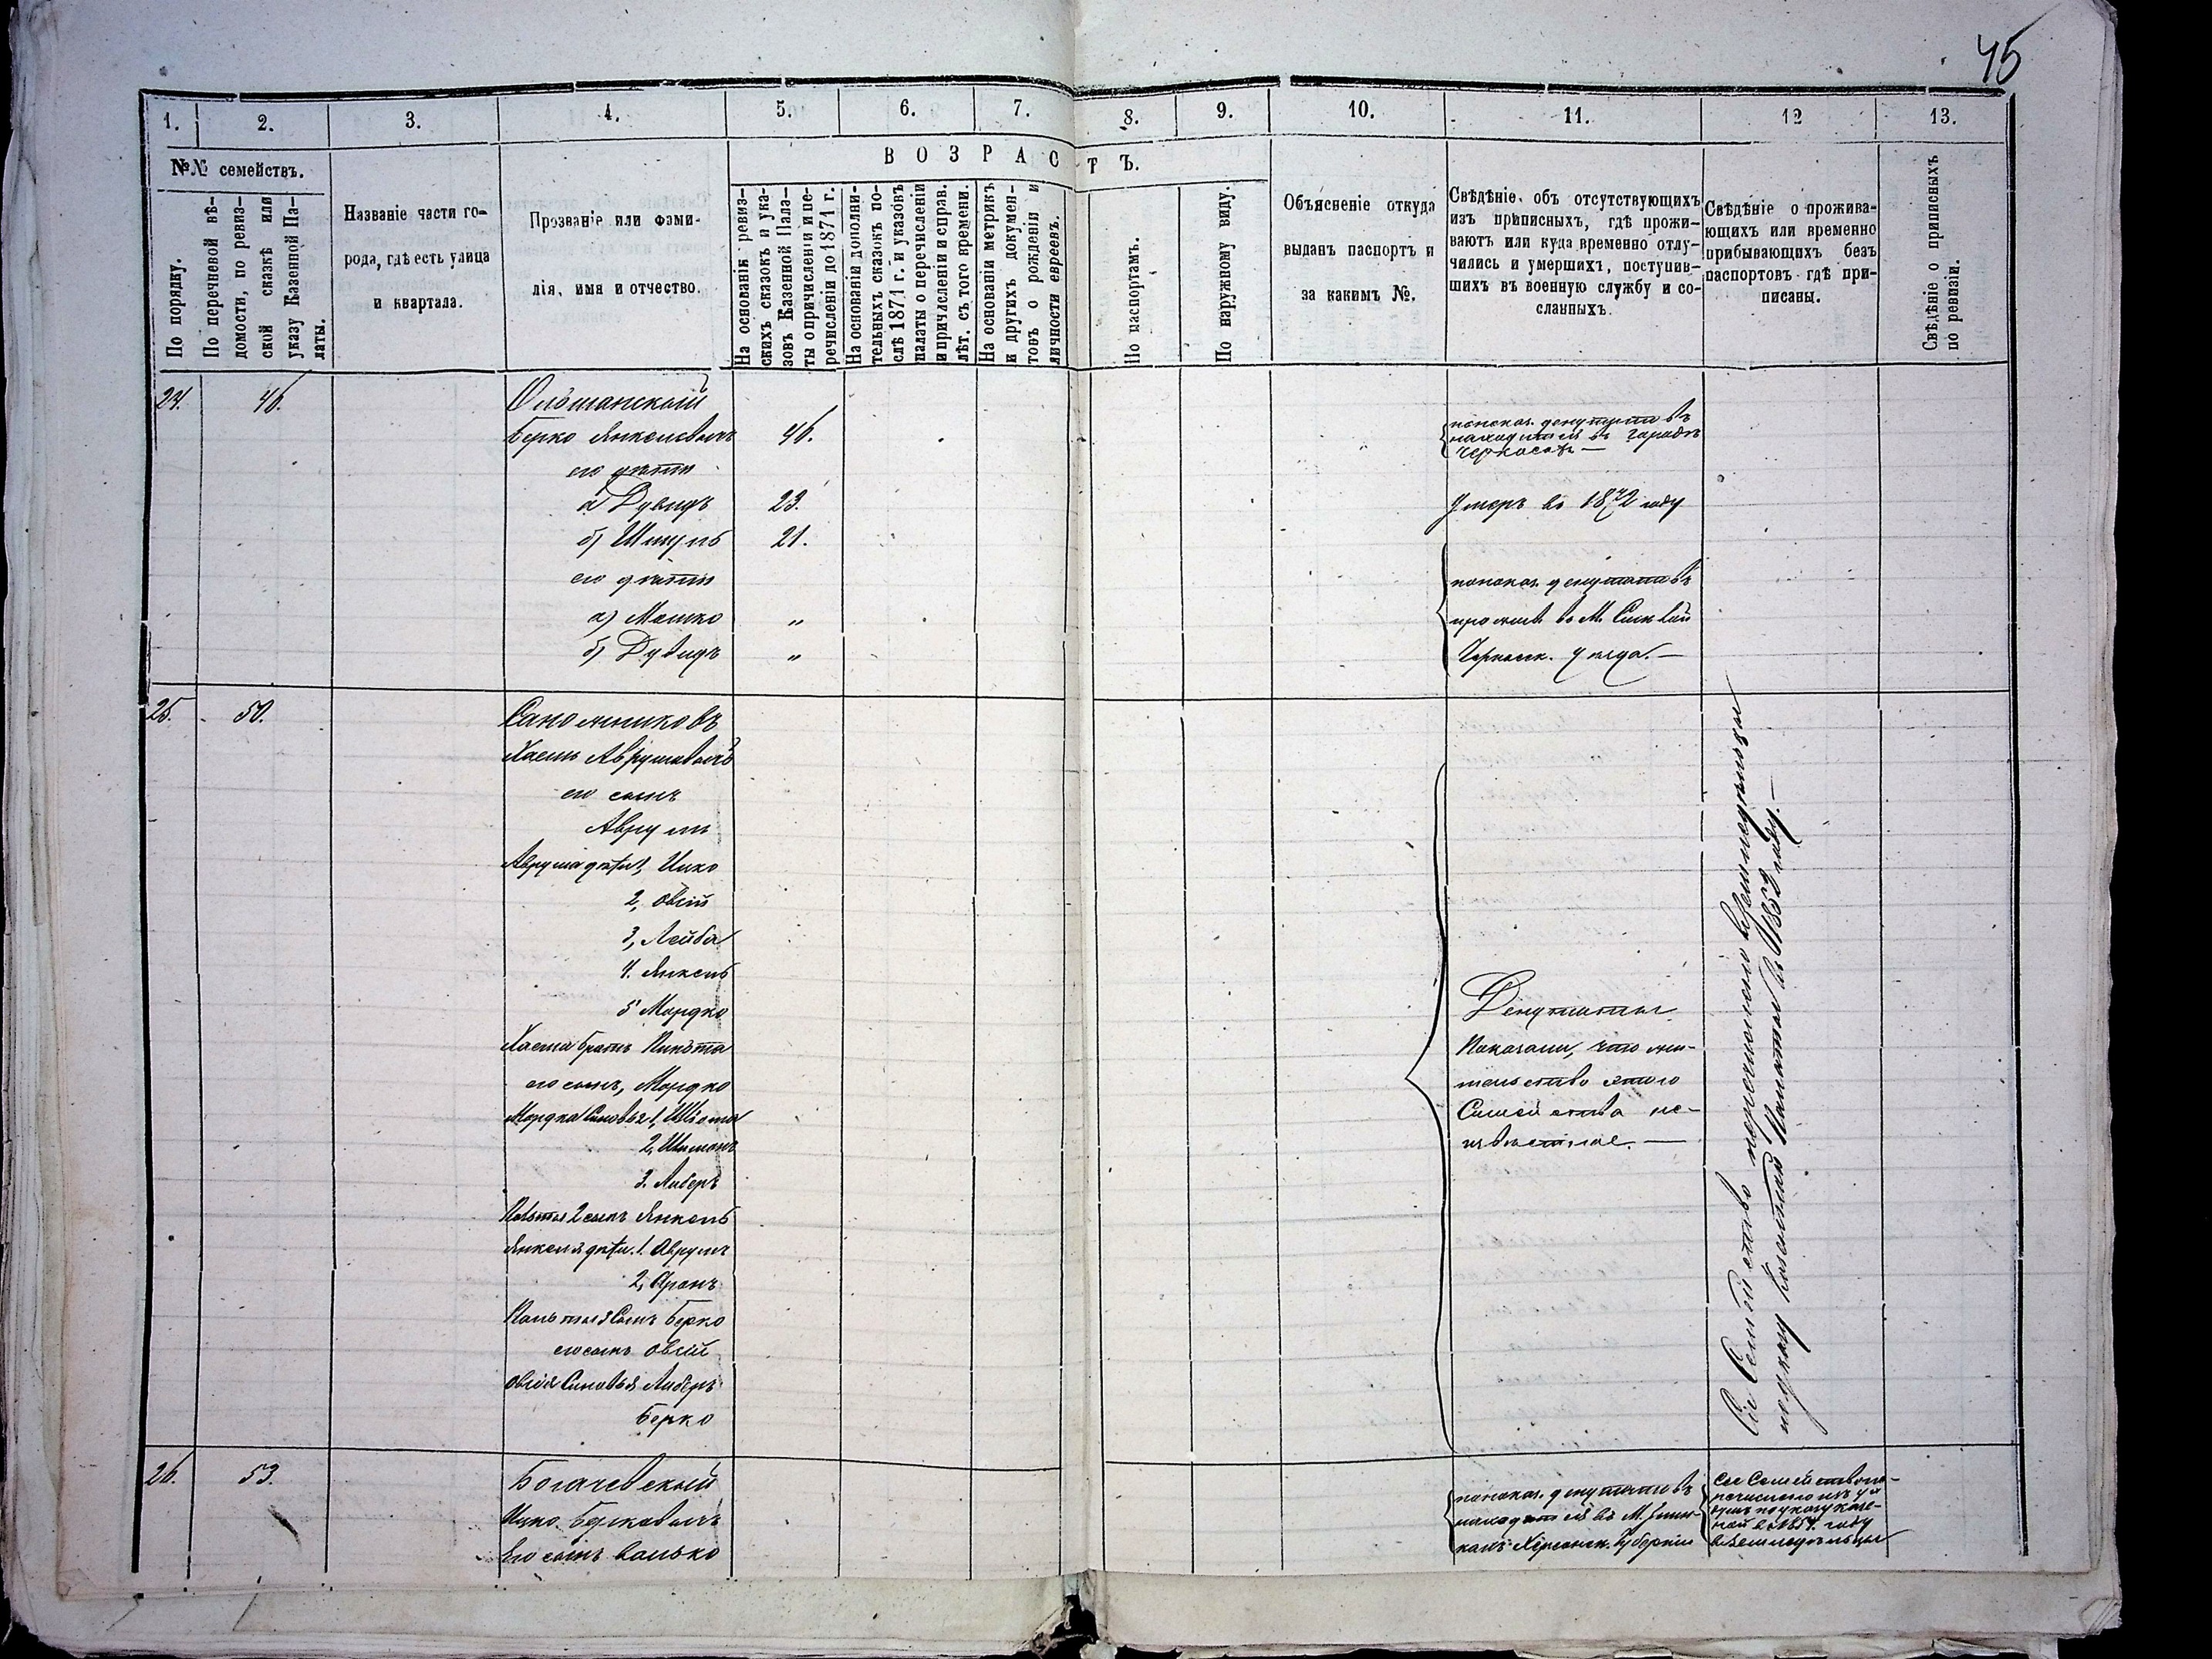 45
1. 2. 3. 4. 5. 6. 7. 8. 9. 10. 11. 12 13.
№№ семействъ.
По порядку.
По перечневой вѣ-
домости, по ревиз-
ской сказкѣ или
указу Казенной Па-
латы.
Названіе части го-
рода, гдѣ есть улица
и квартала.
Прозваніе или фами-
лія, имя и отчество.
ВОЗРАСТЪ.
На основаніи ревиз-
скихъ сказокъ и ука-
зовъ Казенной Пала-
ты о причисленіи и пе-
речисленіи до 1871 г.
На основаніи дополни-
тельныхъ сказокъ по-
слѣ 1871 г. и указовъ
палаты о перечисленіи
и причисленіи и справ.
лѣт. съ того времени.
На основаніи метрикъ
и другихъ докумен-
товъ о рожденіи и
личности евреевъ.
По паспортамъ.
По наружному виду.
Объясненіе откуда
выданъ паспортъ и
за какимъ №.
Свѣдѣніе объ отсутствующихъ
изъ приписныхъ, гдѣ прожи-
ваютъ или куда временно отлу-
чились и умершихъ, поступив-
шихъ въ военную службу и со-
сланныхъ.
Свѣдѣніе о прожива-
ющихъ или временно
прибывающихъ безъ
паспортовъ гдѣ при-
писаны.
Свѣдѣніе о приписныхъ
по ревизіи.
24. 46. Ольшанскій
Берко Янкелевичъ 46.
его дѣти
а Дувидъ 23.
б) Шмуль 21.
его дѣти
а) Мошко "
б) Дувидъ "
показ. депутатовъ
находится въ городѣ
Черкасахъ —
Умеръ въ 1872 году
показан. депутатовъ
прожив. въ М.
Черкасск. уезда. —
25. 50. Сапожниковъ
Хаимъ Аврумовичъ
его сынъ
Аврумъ
Аврума дѣти 1, Ицко
2, Овсій
3, Лейба
4. Янкель
5 Мордко
Хаима братъ
его сынъ, Мордко
Мордка Сыновья 1,
2, Шимонъ
3. Либеръ
2 сынъ Янкель
Янкеля дѣти. 1. Аврумъ
2, Аронъ
3 Сынъ Берко
его сынъ Овсій
Овсія Сыновья Либеръ
Берко
Депутаты
Показали, что жи-
тельство этого
Семейства не-
извѣстное. —
Сіе Семейство перечислено въ земледѣльцы
по указу Казенной Палаты въ 1852 году. —
26. 53. Богачевскій
Ицко Берковичъ
Его сынъ Волько
показан. депутатовъ
находится въ М.
Херсонск. Губерніи
Сіе Семейство пе-
речислено изъ
по указу казе-
ной въ 185 году
въ Земледѣльцы